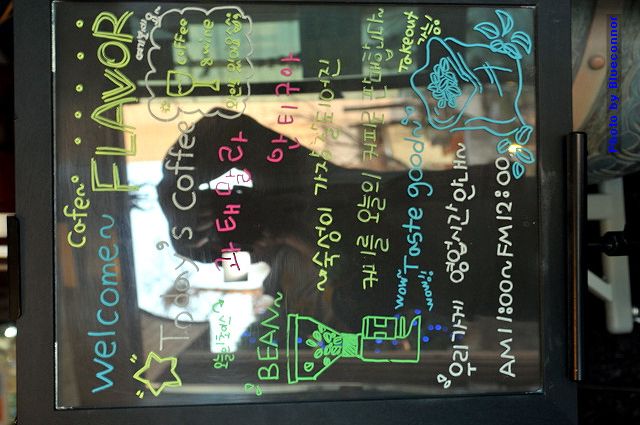 welcome~ Cofee......
FLAVOR
Today's Coffee
coffee
&wine
과테말라
안티구아
BEAN~
~숙성이 가장 잘되어진
오늘의 커피로 판매합니다
wow~ Taste good~
wow!!
Takeout
우리가게 영업시간 안내~
AM11:00~FM12:00
Photo by Blueconnor